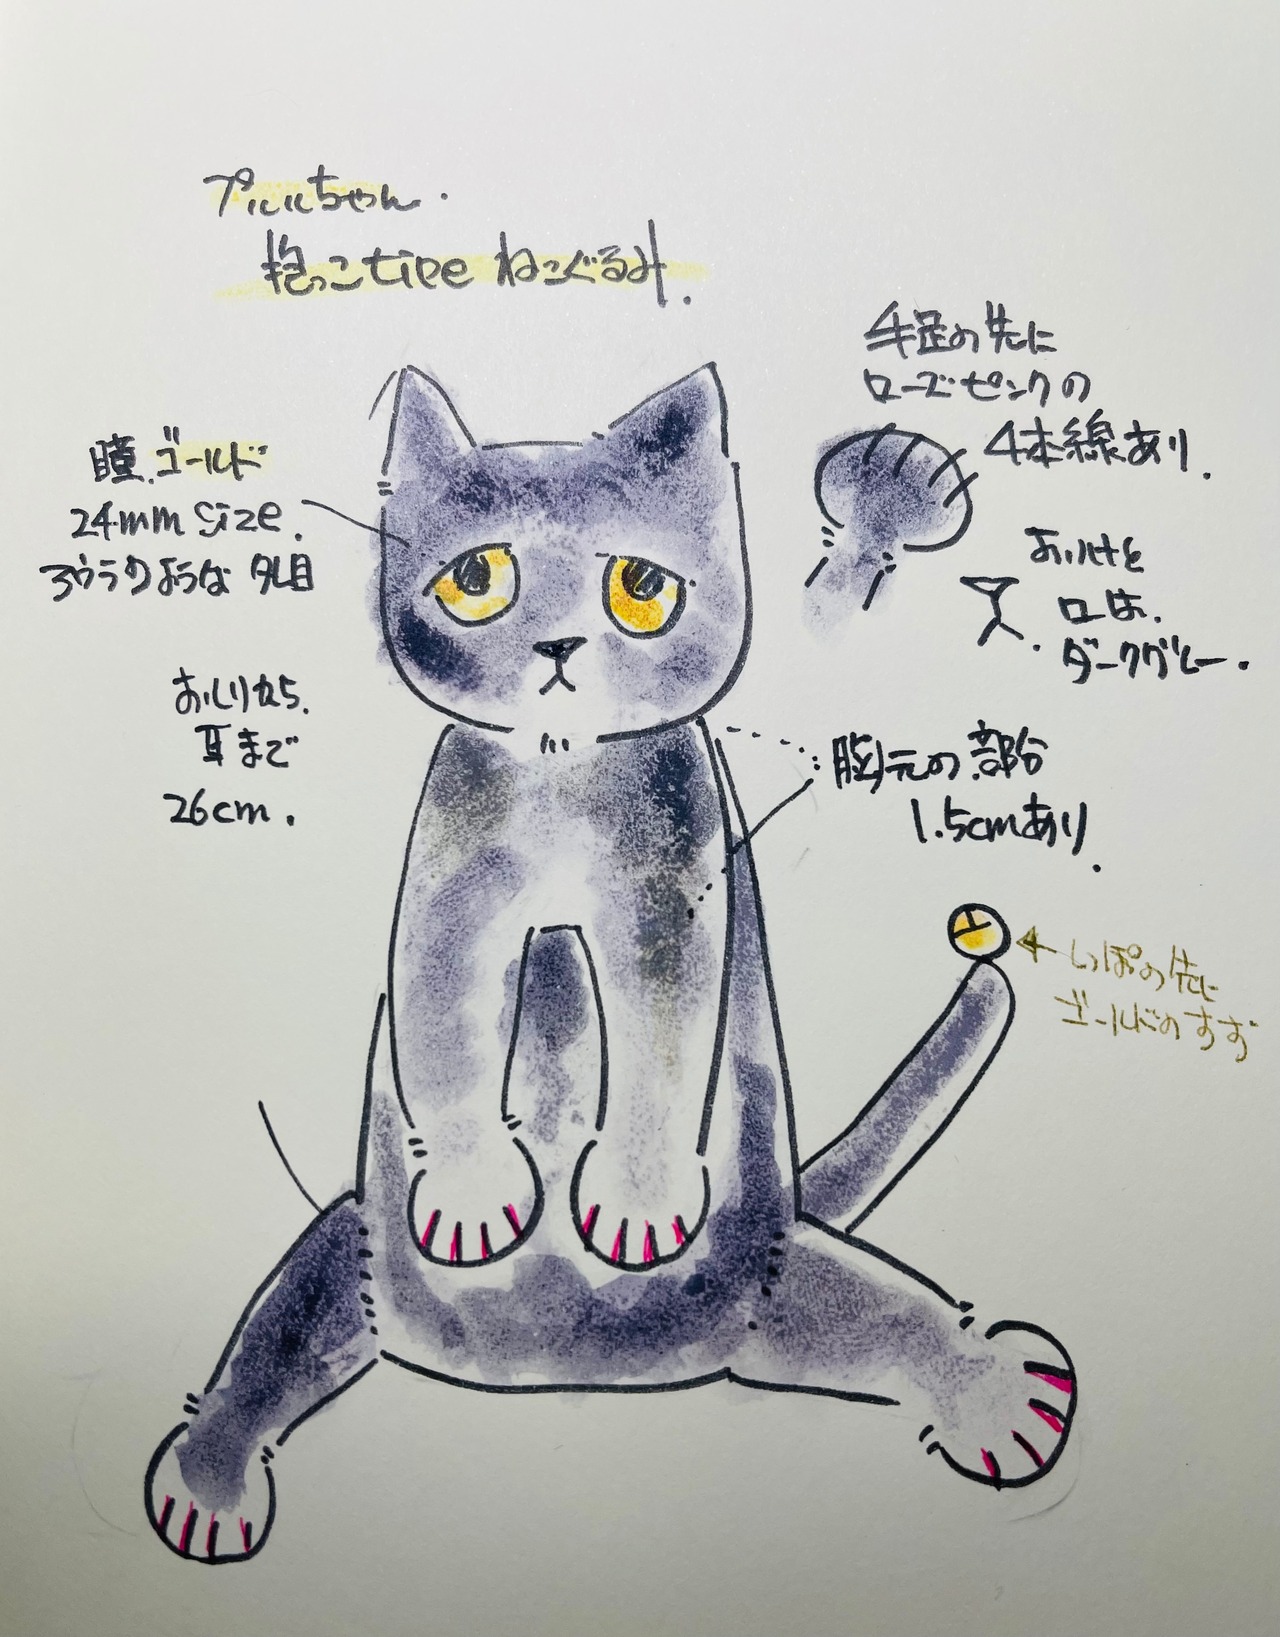 プルルちゃん.
抱っこtipe ねこぐるみ.
手足の先に
ローズピンクの
4本線あり.
瞳.ゴールド
24mm size.
ような タレ目
おはなと
口は.
ダークグレー.
おしりから.
耳まで
26cm.
胸元の部分
1.5cmあり.
しっぽの先に
ゴールドのすず